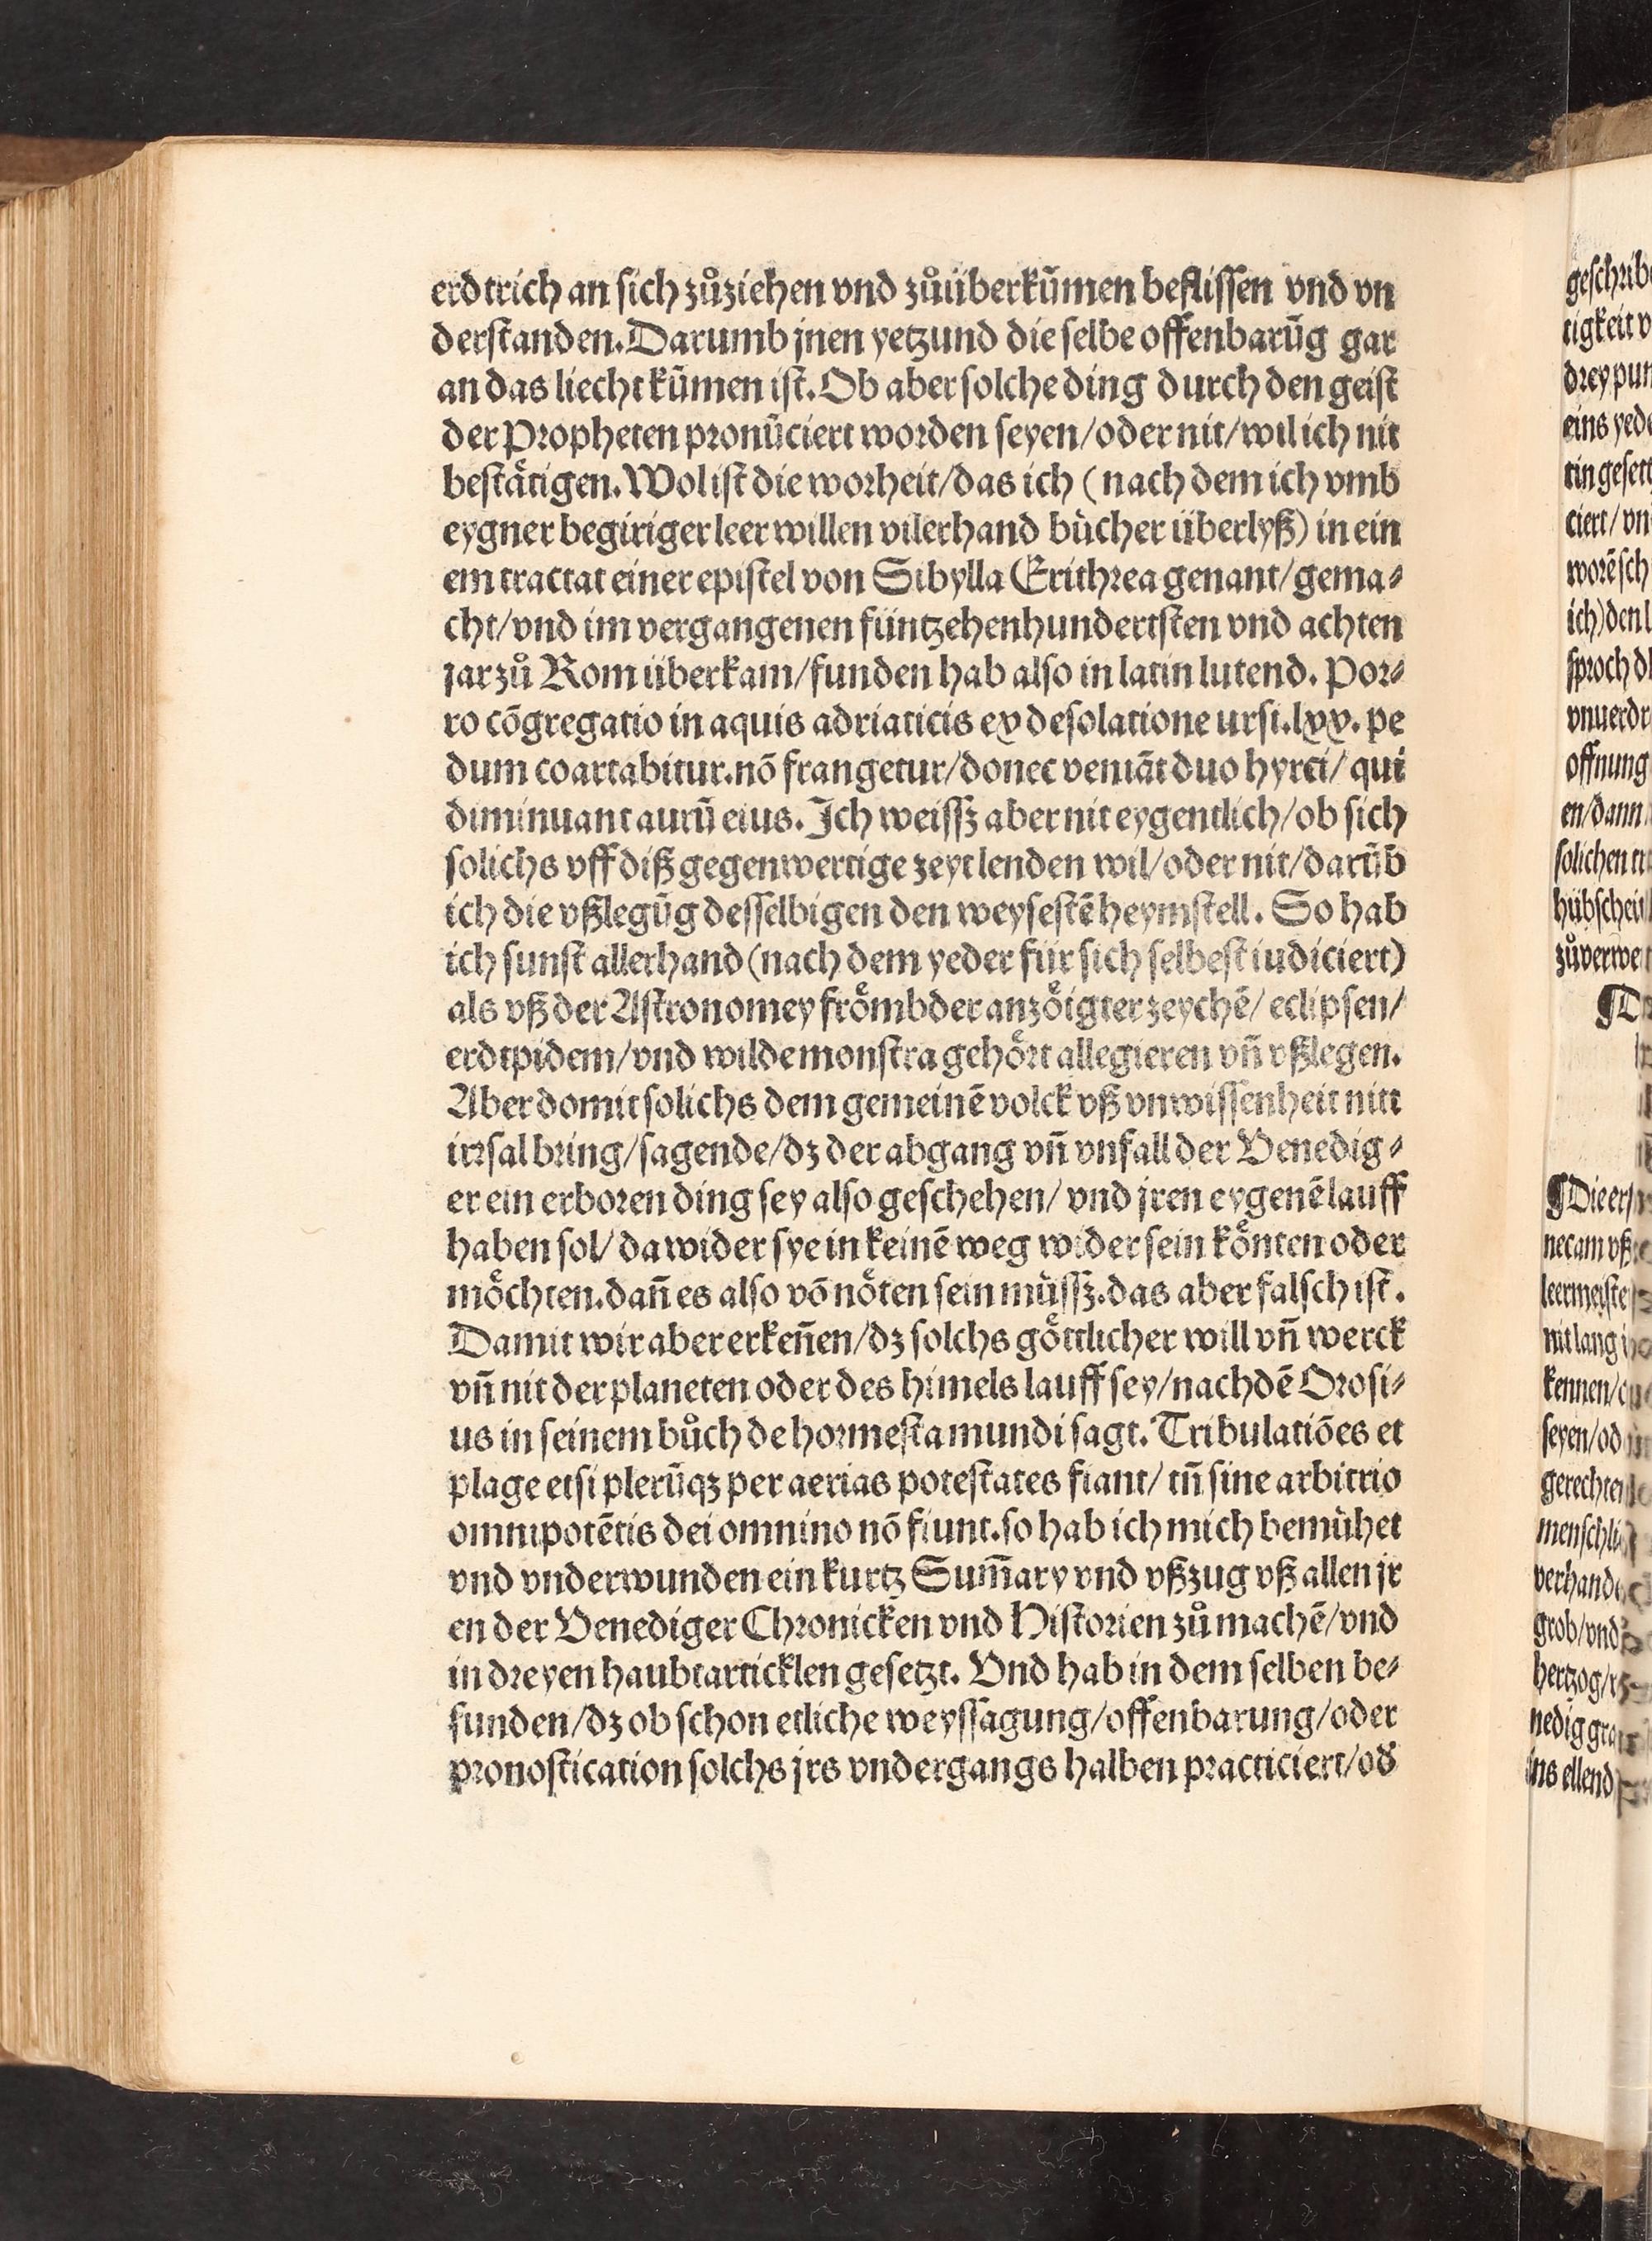 erdtrich an sich zůziehen vnd zůüberkūmen beflissen vnd vn
derstanden. Darumb jnen yetzund die selbe offenbarūg gar
an das liecht kūmen ist. Ob aber solche ding durch den geist
der Propheten pronūciert worden seyen/oder nit/wil ich nit
bestaͤtigen. Wol ist die worheit/das ich (nach dem ich vmb
eygner begiriger leer willen vilerhand buͤcher überlyß) in ein
em tractat einer epistel von Sibylla Erithrea genant/gema⸗
cht/vnd im vergangenen füntzehenhundertsten vnd achten
jar zů Rom überkam/funden hab also in latin lutend. Por⸗
ro cōgregatio in aquis adriaticis ex desolatione ursi.lxx. pe
dum coartabitur.nō frangetur/donec veniāt duo hyrci/ qui
diminuant aurū eius. Ich weissz aber nit eygentlich/ob sich
solichs vff diß gegenwertige zeyt lenden wil/oder nit/darūb
ich die vßlegūg desselbigen den weysestē heymstell. So hab
ich sunst allerhand (nach dem yeder für sich selbest iudiciert)
als vß der Astronomey froͤmbder anzoͤigter zeychē/ eclipsen/
erdtpidem/vnd wilde monstra gehoͤrt allegieren vn̄ vßlegen.
Aber domit solichs dem gemeinē volck vß vnwissenheit nitt
irrsal bring/sagende/dz der abgang vn̄ vnfall der Venedig⸗
er ein erboren ding sey also geschehen/ vnd jren eygenē lauff
haben sol/ da wider sye in keinē weg wider sein koͤnten oder
moͤchten.dan̄ es also vō noͤten sein muͤssz.das aber falsch ist.
Damit wir aber erken̄en/dz solchs goͤttlicher will vn̄ werck
vn̄ nit der planeten oder des himels lauff sey/nachdē Orosi⸗
us in seinem bůch de hormesta mundi sagt. Tribulatiōes et
plage etsi plerūqꝫ per aerias potestates fiant/ tn̄ sine arbitrio
omnipotētis dei omnino nō fiunt.so hab ich mich bemuͤhet
vnd vnderwunden ein kurtz Sum̄ary vnd vßzug vß allen jr
en der Venediger Chronicken vnd Historien zů machē/vnd
in dreyen haubtarticklen gesetzt. Vnd hab in dem selben be⸗
funden/dz ob schon etliche weyssagung/offenbarung/oder
pronostication solchs jrs vndergangs halben practiciert/od̛
geschribe
tigkeit v
drey pun
eins yed
tin gesett
ciert/ vn
worē sch
ich) den l
sproch d
vnuerdr
offnung
en/dann
solichen
hübsche
zůverwe
¶D
¶Die ers
necam vß
leermeiste
nit lang
kennen/
seyen/od
gerechte
menschli
verhand
grob/vnd
hertzog/
nedig gra
ins ellend